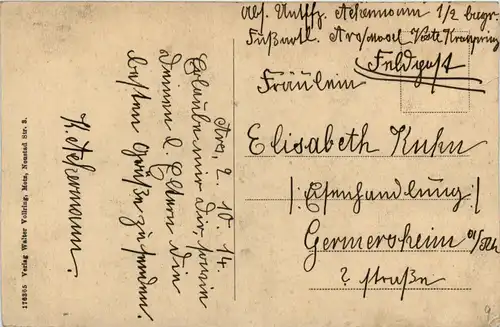 Abs. Untffz. Ackermann 1/2 bayr.
Fußartl. Ars/mosel Feste Kronprinz
Feldpost
Fräulein
Elisabeth Kuhn
/: Eisenhandlung :/
Germersheim a/Rh
? straße
Ars, 2. 10. 14.
Erlaube mir Dir, sowie
Deinen l. Eltern die
besten Grüße zu senden.
K. Ackermann.
176365 Verlag Walter Vollring, Metz, Neustad Str. 3.